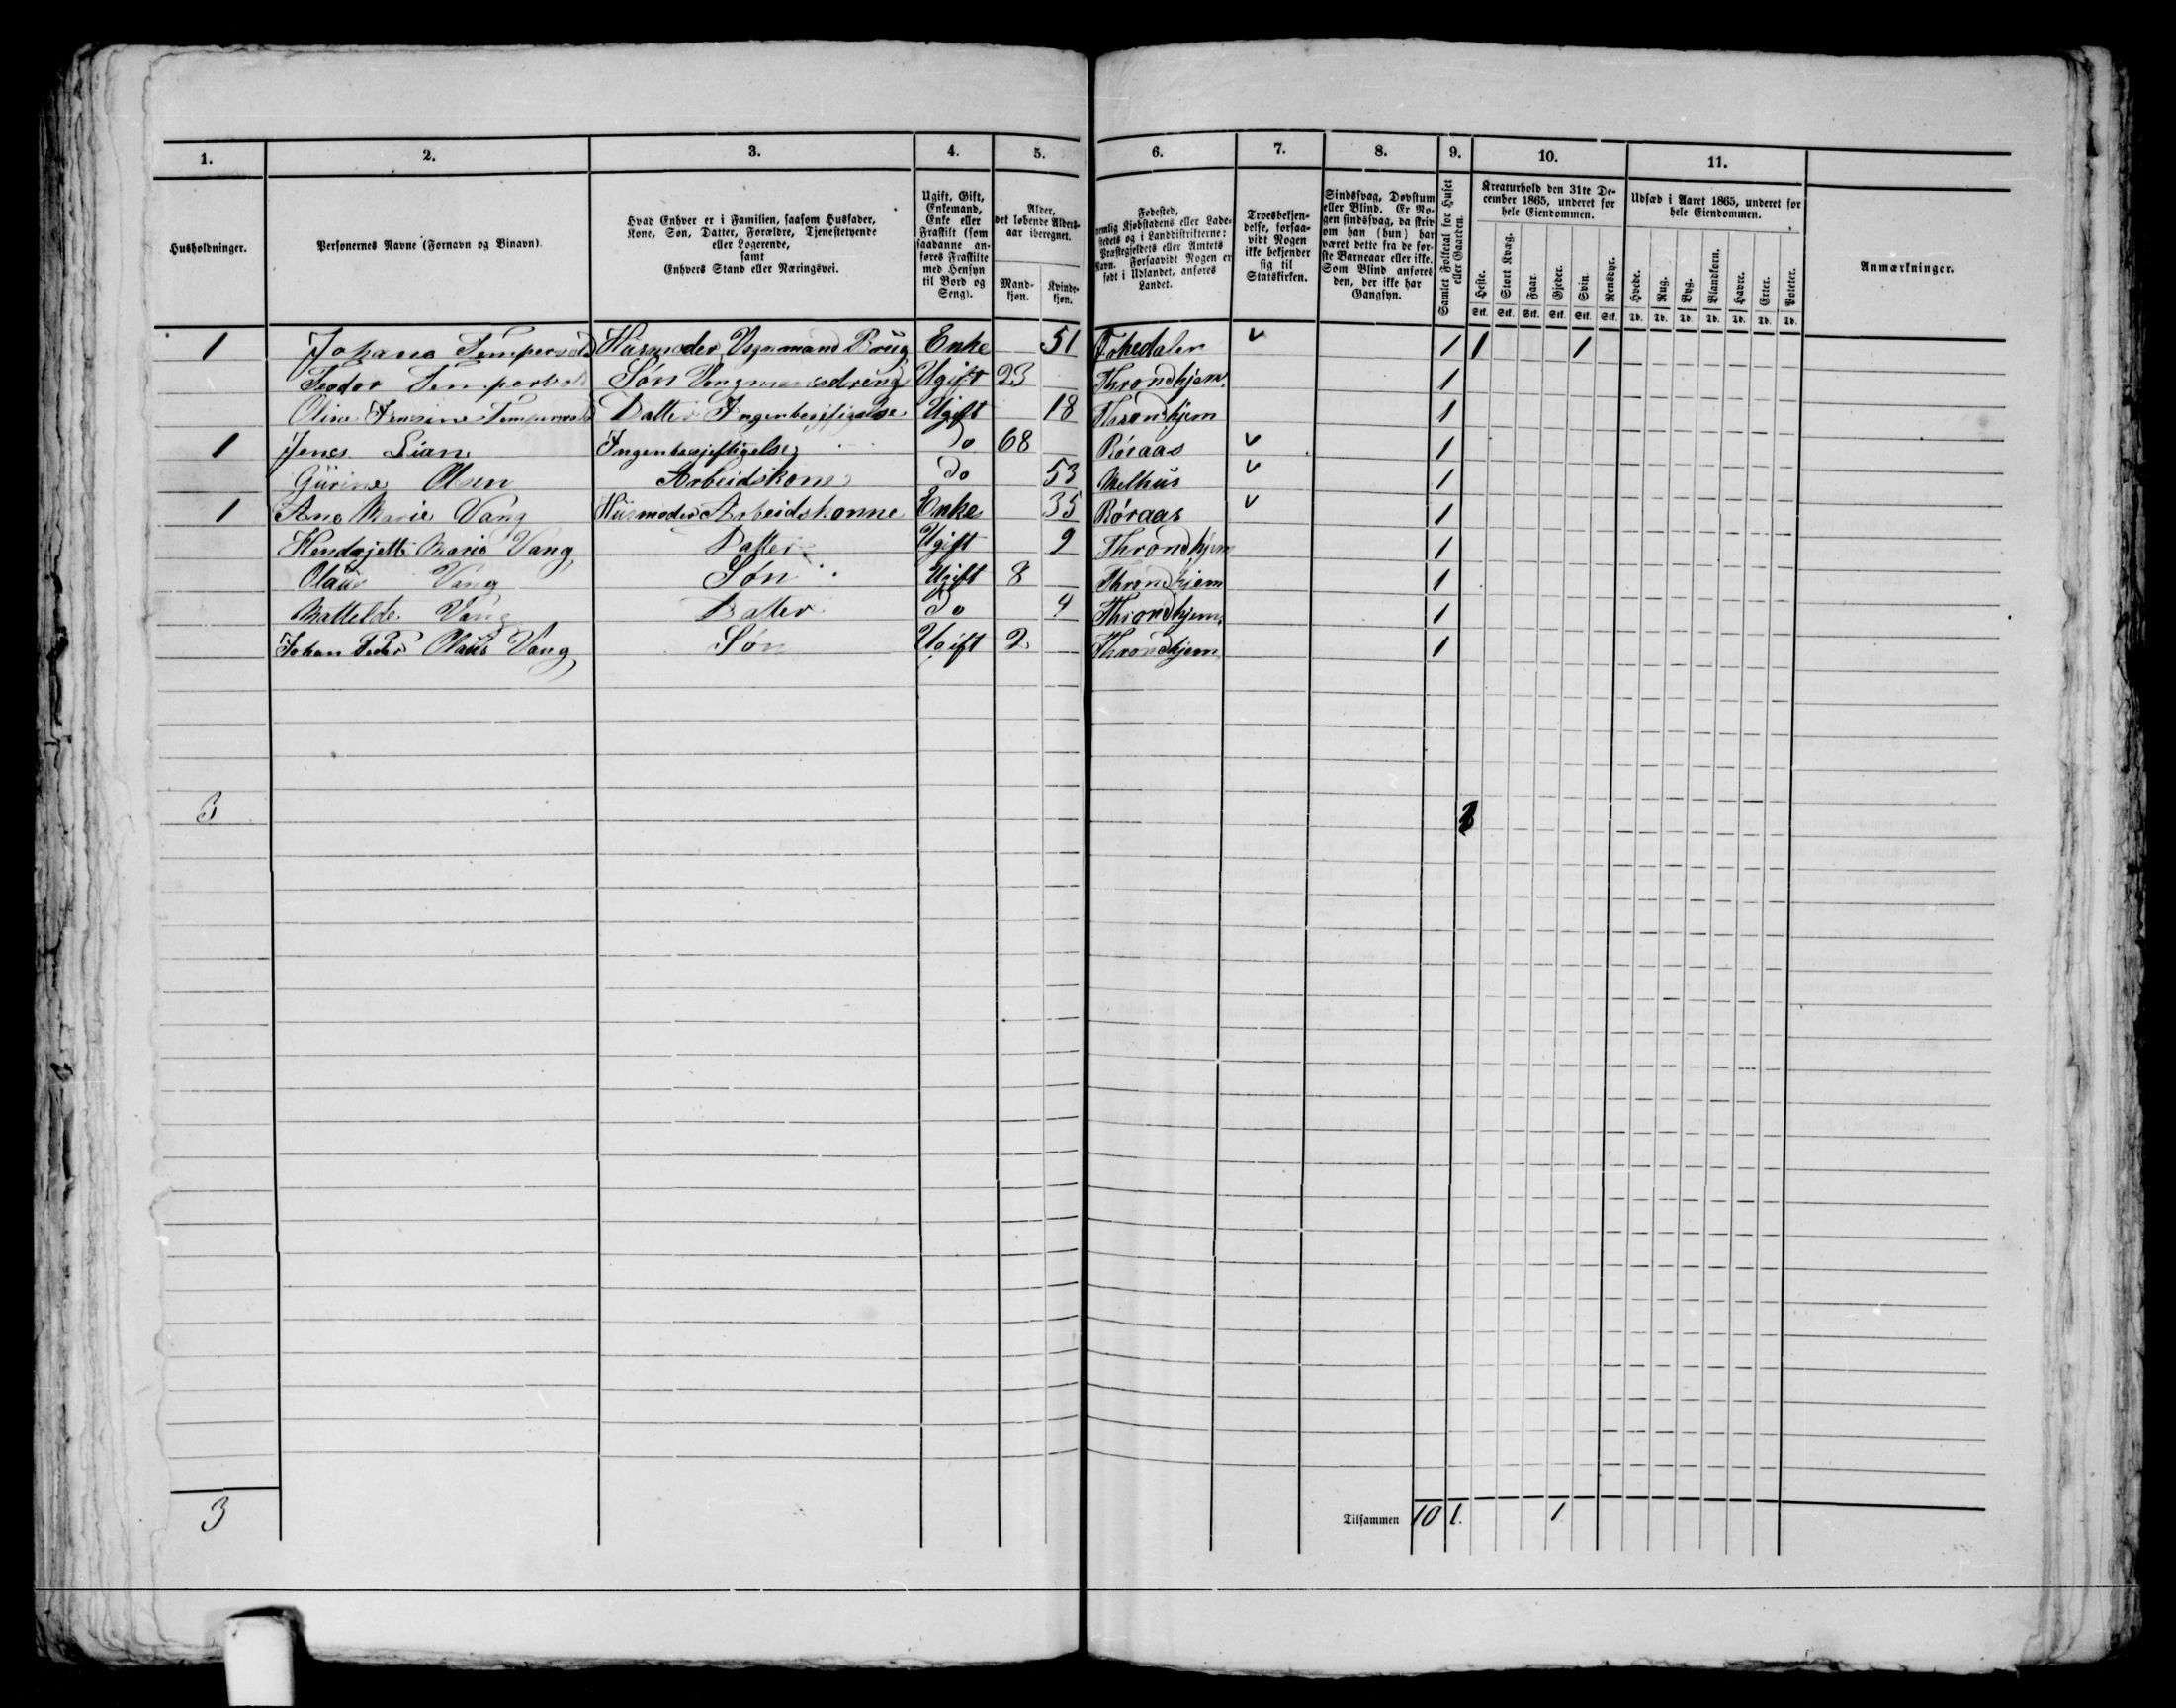 1. 2. 3. 4. 5. 6. 7. 8. 9. 10. 11.
Husholdninger.
Personernes Navne (Fornavn og Binavn).
Hvad Enhver er i Familien, saasom Husfader,
Kone, Søn, Datter, Forældre, Tjenestetyende
eller Logerende,
samt
Enhvers Stand eller Næringsvei.
Ugift, Gift,
Enkemand,
Enke eller
Fraskilt (som
saadanne an-
føres Fraskilte
med Hensyn
til Bord og
Seng).
Alder,
det løbende Alders-
aar iberegnet.
Mand-
kjøn.
Kvinde-
kjøn.
Fødested,
nemlig Kjøbstadens eller Lade-
stedets og i Landdistrikterne:
Præstegjeldets eller Amtets
Navn. Forsaavidt Nogen er
født i Udlandet, anføres
Landet.
Troesbekjen-
delse, forsaa-
vidt Nogen
ikke bekjender
sig til
Statskirken.
Sindssvag, Døvstum
eller Blind. Er No-
gen sindssvag, da skriv
om han (hun) har
været dette fra de før-
ste Barneaar eller ikke.
Som Blind anføres
den, der ikke har
Gangsyn.
Samlet Folketal for Huset
eller Gaarden.
Kreaturhold den 31te De-
cember 1865, underet for
hele Eiendommen.
Heste. Stort Kvæg. Faar. Gjeder. Svin. Rensdyr.
Stk. Stk. Stk. Stk. Stk. Stk.
Udsæd i Aaret 1865, underet for
hele Eiendommen.
Hvede. Rug. Byg. Blandkorn. Havre. Erter. Poteter.
Td. Td. Td. Td. Td. Td. Td.
Anmærkninger.
1 Johana Husmoder Enke 51 Orkedalen 1 1 1
Teodor Søn Ugift 23 Throndhjem 1
Oline Jensine Datter Ingenbesjeftigelse Ugift 18 Throndhjem 1
1 Jens Lian Ingenbesjeftigelse Do 68 Röraas 1
Gurine Olsen Arbeidskone Do 53 Melhus 1
1 Ane Marie Vang Husmoder Arbeidskonne Enke 35 Röraas 1
Marie Vang Datter Ugift 9 Throndhjem 1
Olaus Vang Søn Ugift 8 Throndhjem 1
Mattelde Vang Datter Do 4 Throndhjem 1
Johan Peder Olaus Vang Søn Ugift 2 Throndhjem 1
3
3 Tilsammen 10 1. 1